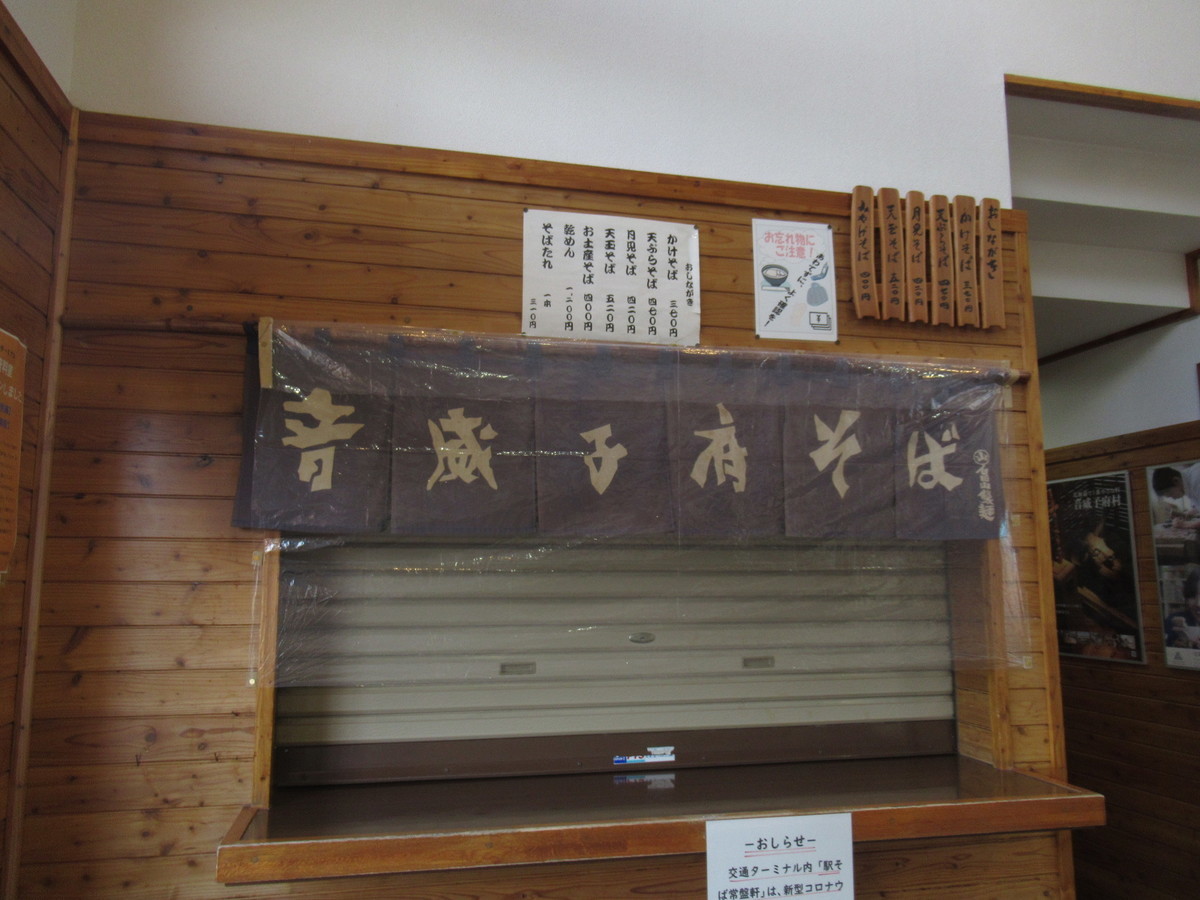 おしながき
かけそば 三七〇円
天ぷらそば 四七〇円
月見そば 四二〇円
天玉そば 五二〇円
お土産そば 四〇〇円
乾めん 一、二〇〇円
そばたれ 一本 三一〇円
お忘れ物に
ご注意!
あわてずに、
よく確認を!
おしながき
かけそば 三七〇円
天ぷらそば 四七〇円
月見そば 四二〇円
天玉そば 五二〇円
みやげそば 四〇〇円
音威子府そば
音威子府村
ーおしらせー
交通ターミナル内「駅そ
ば常盤軒」は、新型コロナウ